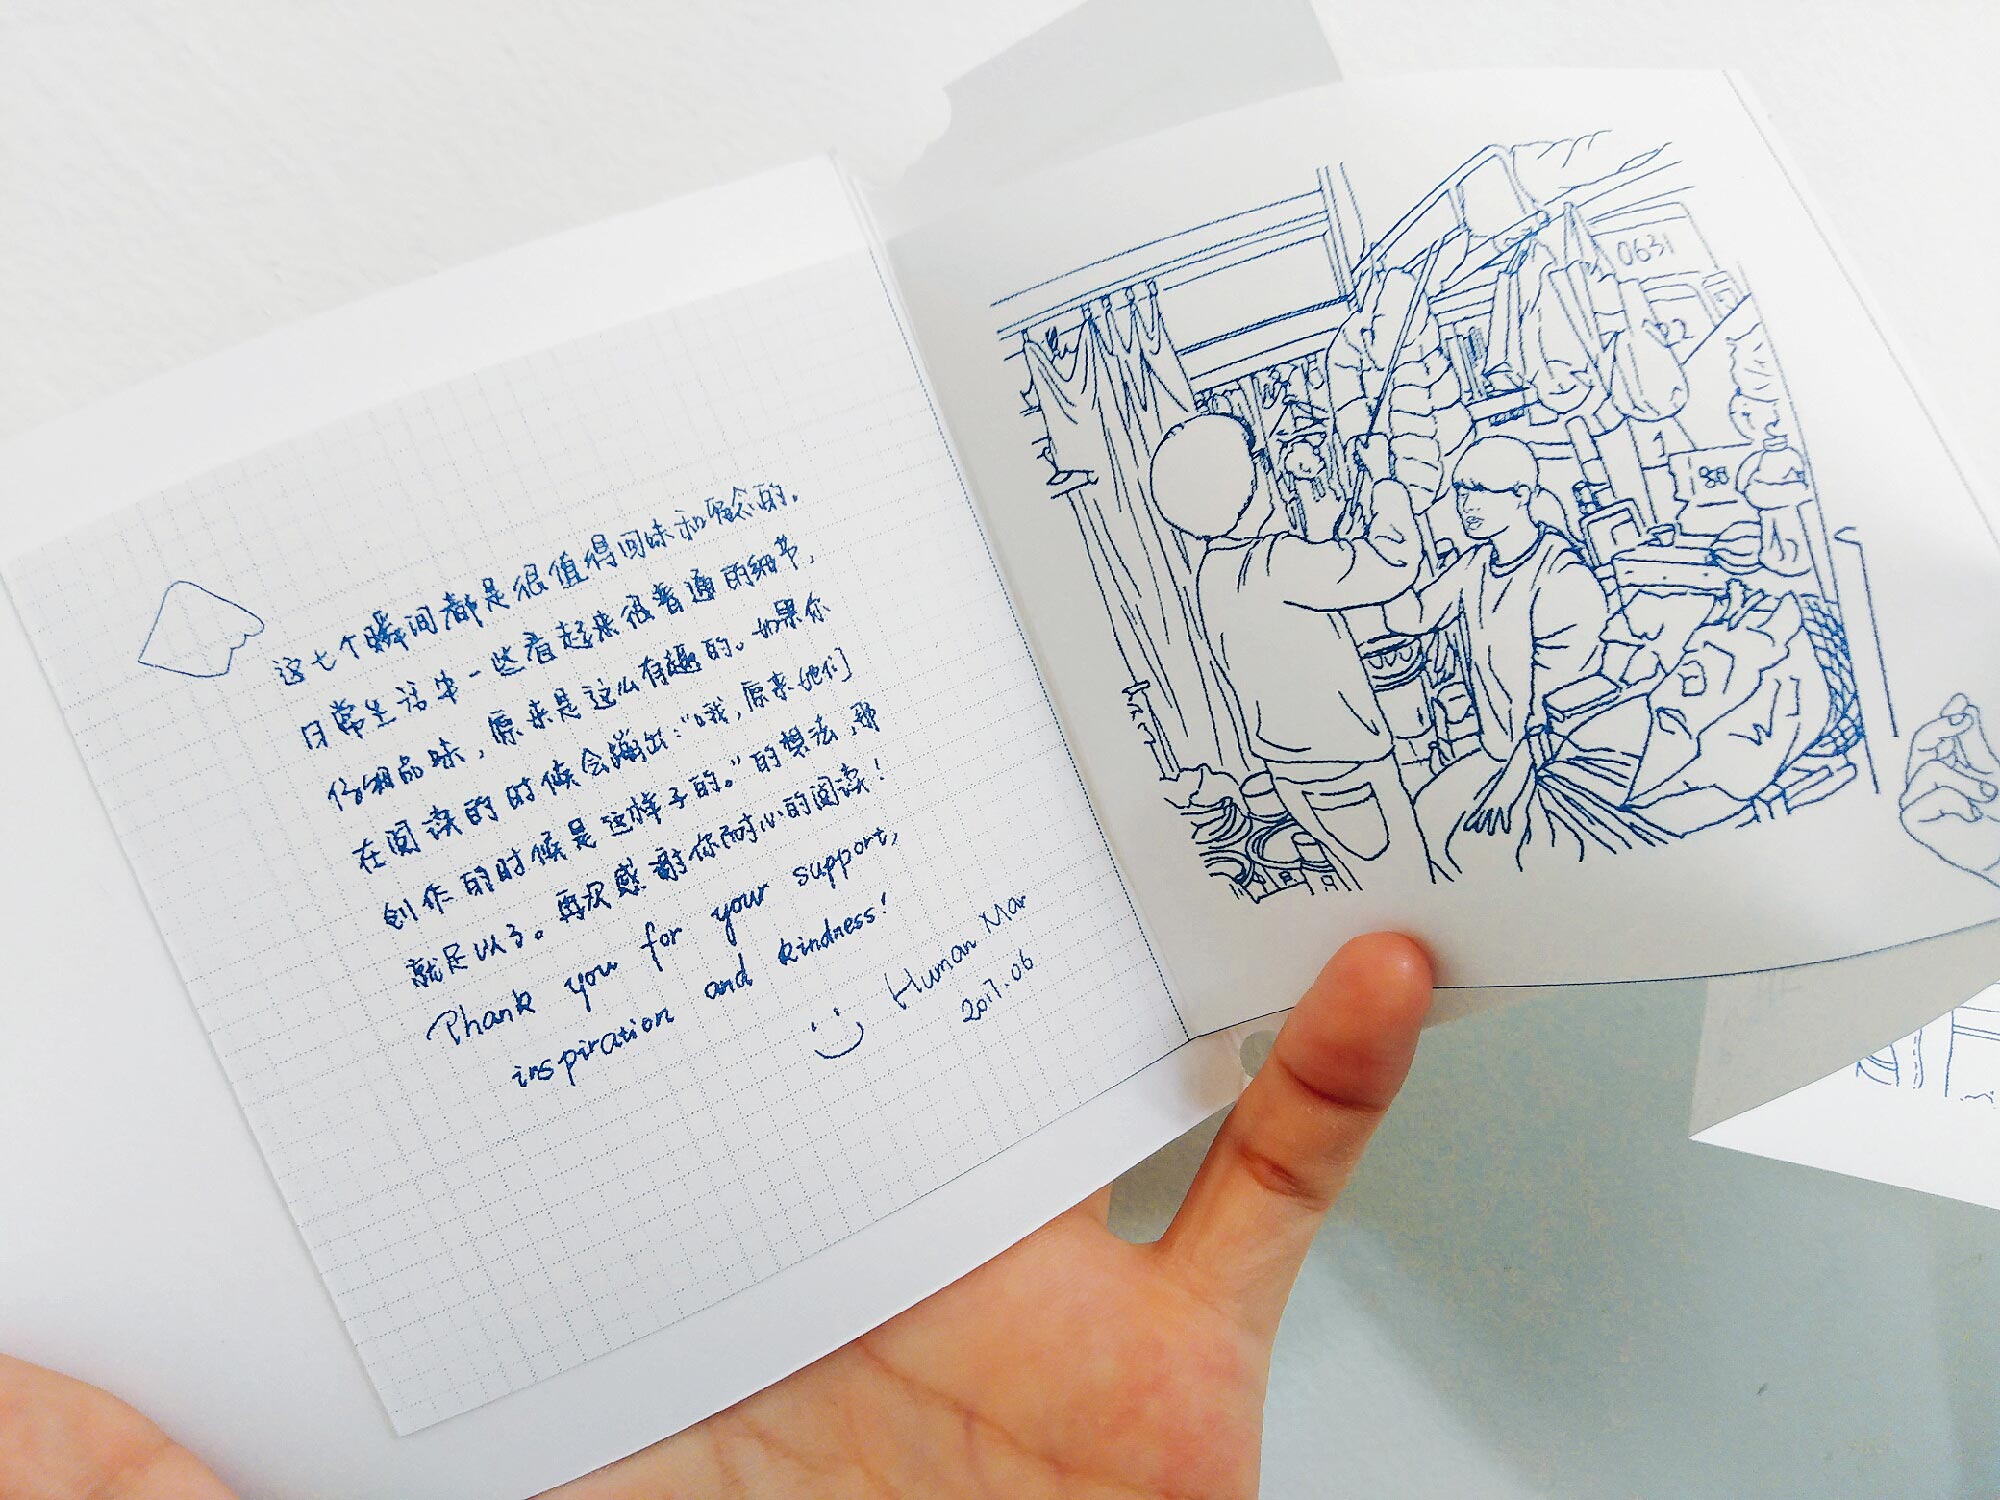 这七个瞬间都是很值得回味和留念的。
日常生活中一些看起来很普通的细节，
仔细品味，原来是这么有趣的。如果你
在阅读的时候会蹦出："哦，原来她们
创作的时候是这样子的。"的想法，那
就足以了。再次感谢你耐心的阅读！
Thank you for your support,
inspiration and kindness!
Human Mar
2017.06
0631